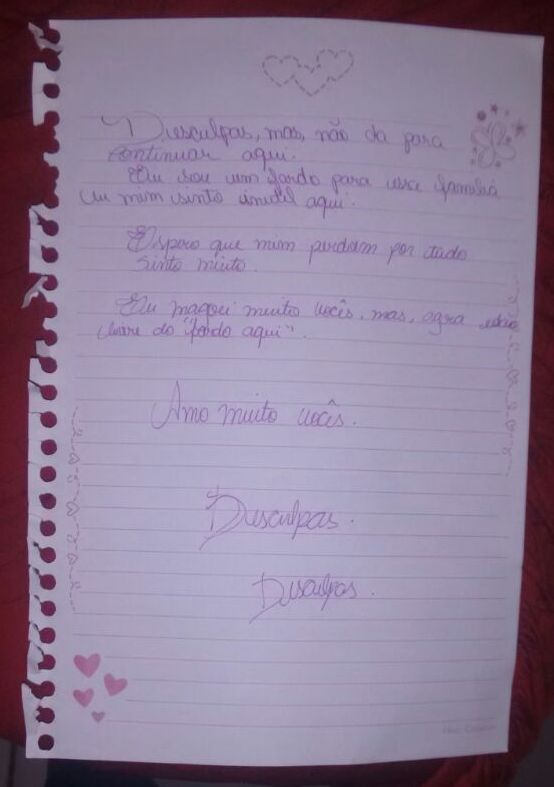 Desculpas, mas, não da para
continuar aqui.
Eu sou um fardo para essa familia
eu mim sinto inutil aqui.
Espero que mim perdoem por tudo
sinto muito.
Eu magoei muito vocês, mas, agra estão
livre do "fardo aqui".
Amo muito vocês.
Desculpas.
Desculpas.